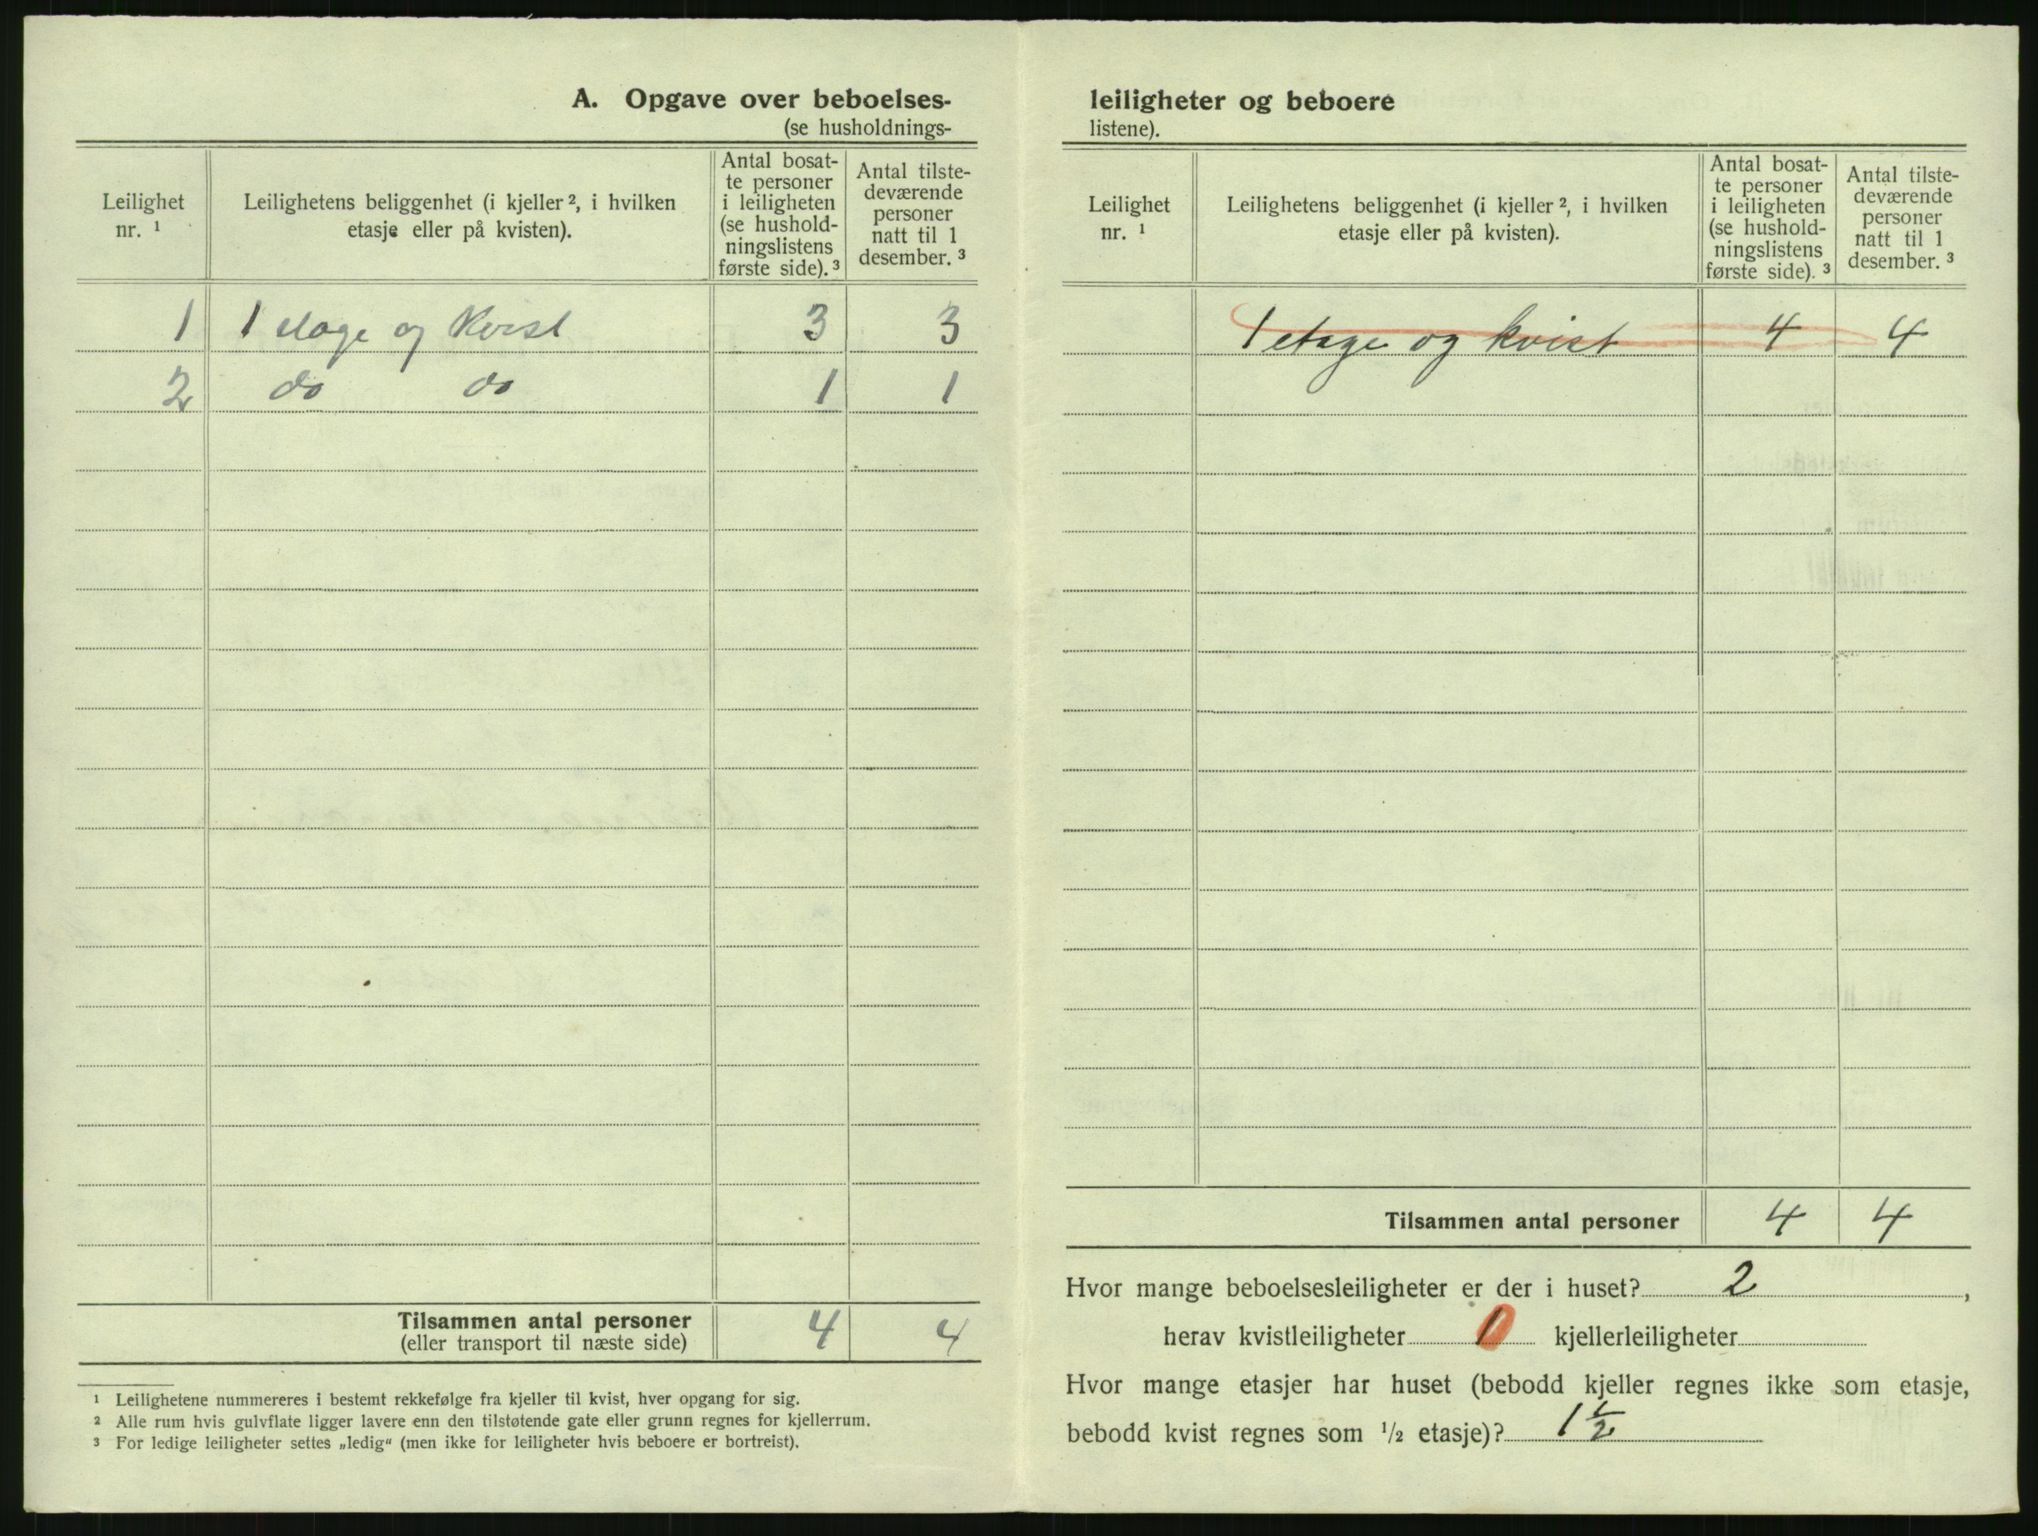 A. Opgave over beboelses-
(se husholdnings-
Leilighet
nr. ¹
Leilighetens beliggenhet (i kjeller ², i hvilken
etasje eller på kvisten).
Antal bosat-
te personer
i leiligheten
(se hushold-
ningslistens
første side). ³
Antal tilste-
deværende
personer
natt til 1
desember. ³
1 1 etage og Kvist 3 3
2 do do 1 1
Tilsammen antal personer 4 4
(eller transport til næste side)
¹ Leilighetene nummereres i bestemt rekkefølge fra kjeller til kvist, hver opgang for sig.
² Alle rum hvis gulvflate ligger lavere enn den tilstøtende gate eller grunn regnes for kjellerrum.
³ For ledige leiligheter settes „ledig“ (men ikke for leiligheter hvis beboere er bortreist).
leiligheter og beboere
listene).
Leilighet
nr. ¹
Leilighetens beliggenhet (i kjeller ², i hvilken
etasje eller på kvisten).
Antal bosat-
te personer
i leiligheten
(se hushold-
ningslistens
første side). ³
Antal tilste-
deværende
personer
natt til 1
desember. ³
1 etage og kvist 4 4
Tilsammen antal personer 4 4
Hvor mange beboelsesleiligheter er der i huset? 2 ,
herav kvistleiligheter 1 kjellerleiligheter
Hvor mange etasjer har huset (bebodd kjeller regnes ikke som etasje,
bebodd kvist regnes som ½ etasje)? 1 ½